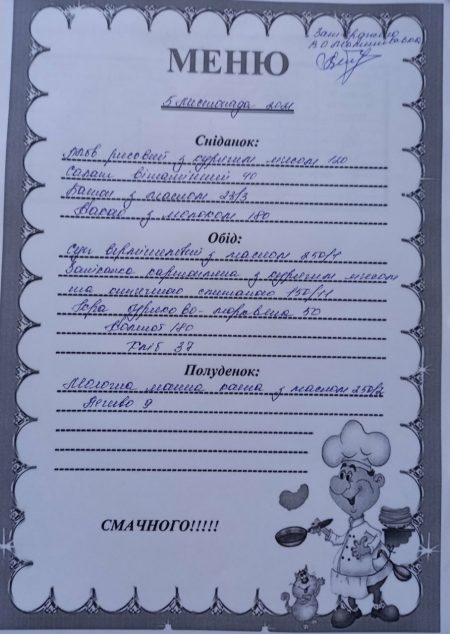 МЕНЮ
5 листопада 2021
Сніданок:
Плов рисовий з курячим мясом 120
Салат вітамінний 40
Батон з маслом 23/3
Какао з молоком 180
Обід:
Суп вермішелевий з маслом 250/4
Запіканка картопляна з курячим мясом
та сметаною 150/11
Ікра буряково-морквяна 50
Компот 180
Хліб 37
Полуденок:
Молочна манна каша з маслом 250/2
Печиво 9
СМАЧНОГО!!!!!